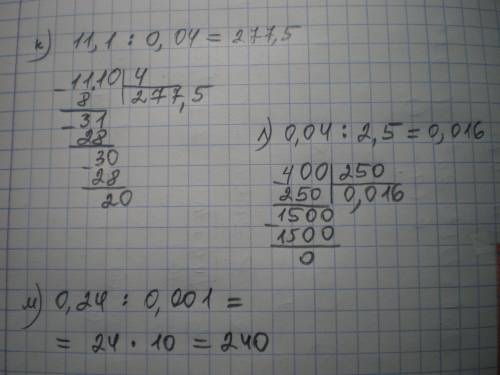 к) 11,1 : 0,04 = 277,5
- 11,10 | 4
8 | 277,5
- 31
28
- 30
28
20
л) 0,04 : 2,5 = 0,016
- 400 | 250
250 | 0,016
- 1500
1500
0
м) 0,24 : 0,001 =
= 24 · 10 = 240